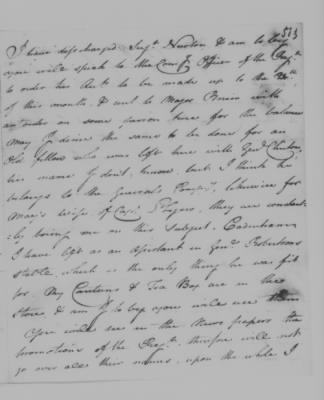 513
I have discharged Serj.t Newton & am to beg
you will speak to the Com.g Officer of the Reg.t
to order his Acc.ts to be made up to the 24th
of this month & sent to Major Bruen with
an order on some person here for the balance
may I desire the same to be done for an
Old fellow who was left here with Gen.l Clinton,
his name I don't know, but I think he
belongs to the General's Comp.y, likewise for
wife of Cap.t they are constant-
:ly boring me on this subject.
I have left as an Assistant in Gen.l Robertsons
stable, which is the only thing he was fit
for My Canteens & Tea Box are in the
Store & am I to beg you will use them
You will see in the News papers the
promotions of the Reg.t, therefore will not
go over all their names, upon the while I